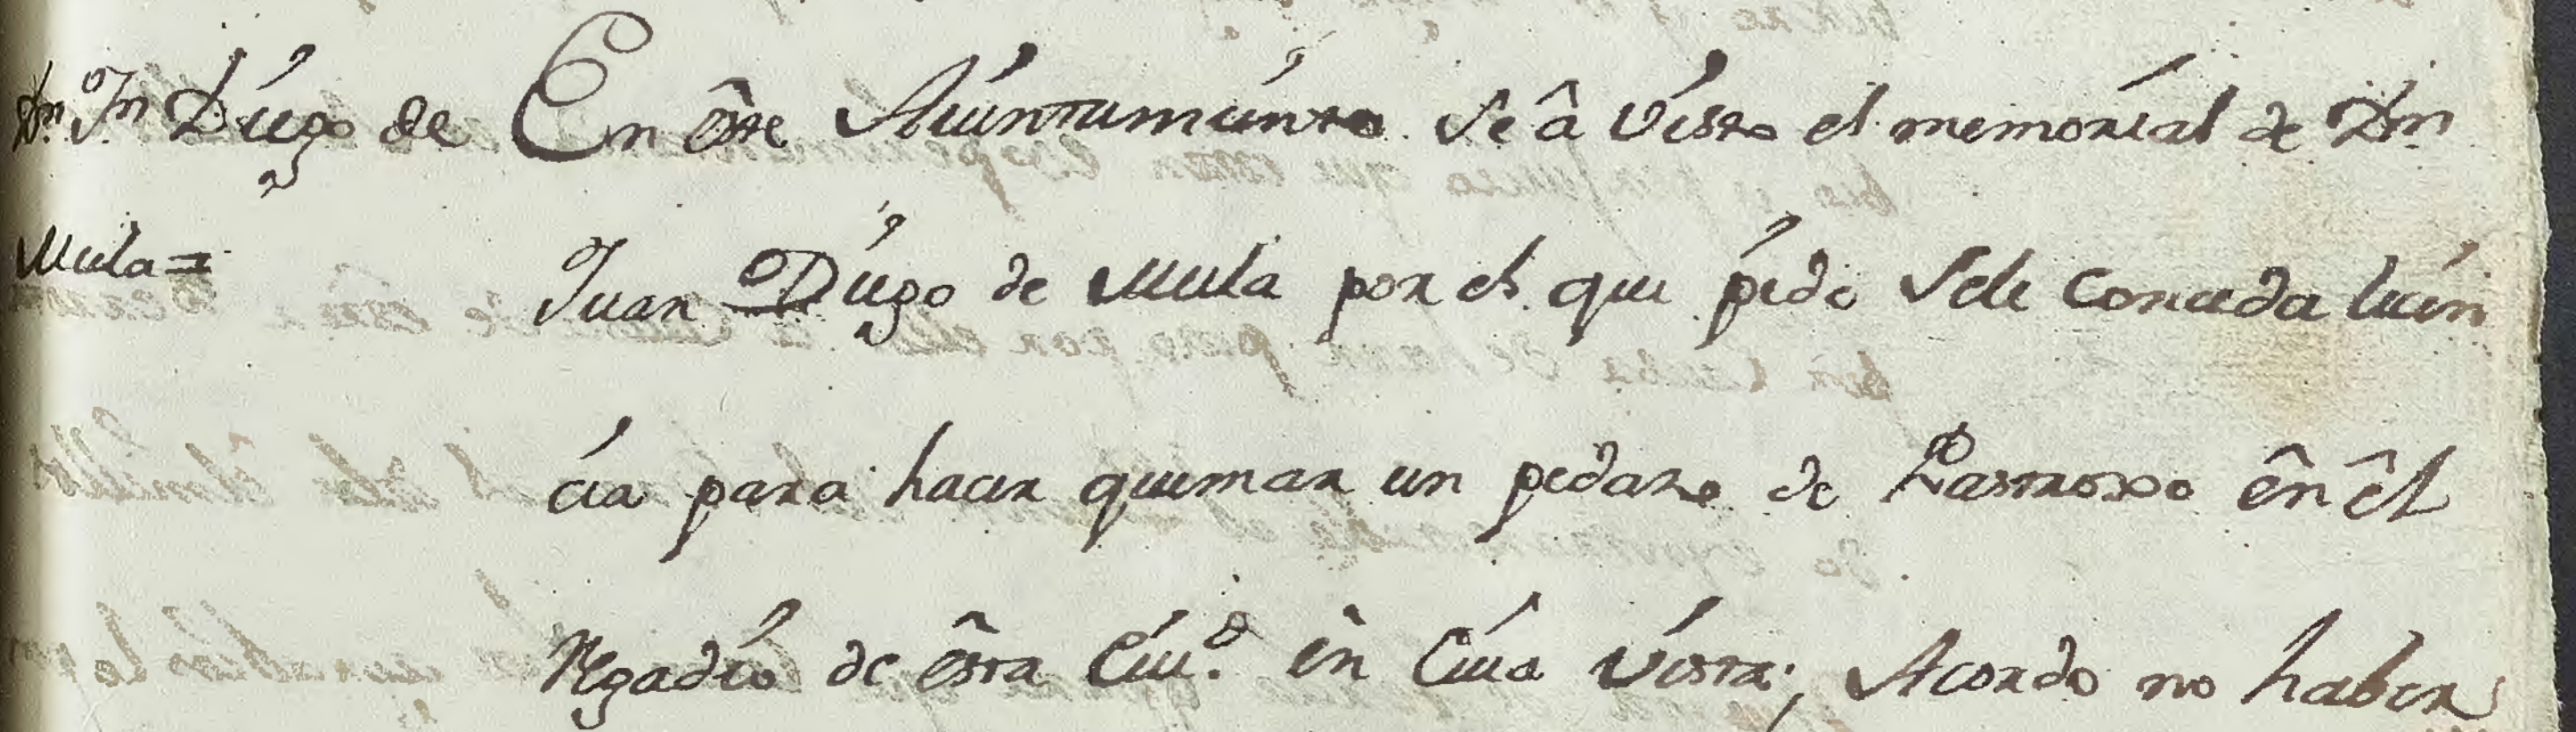 Dn. Jn Diego de
Mula =
En êste Aiuntamiento se â visto el memorial de Dn
Juan Diego de Mula por el que pide sele conceda licen
cia para hacer quemar un pedazo de Rastroxo ên êl
Regadio de êsta Ciu.d ên Cuia vista; Acordo no haber